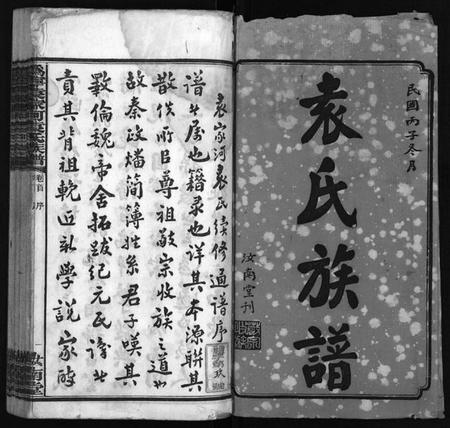 民國丙子冬月
袁氏族譜
汝南堂刊
袁家河袁氏續修通譜序
譜者屬也籍录也详其本源聯其
散佚所以尊祖敬宗收族之道也
故秦政燔簡簿姓系君子嘆其
斁倫魏帝舍拓跋紀元氏谤史
責其背祖輓近氣學說家
卷首
序
汝南堂